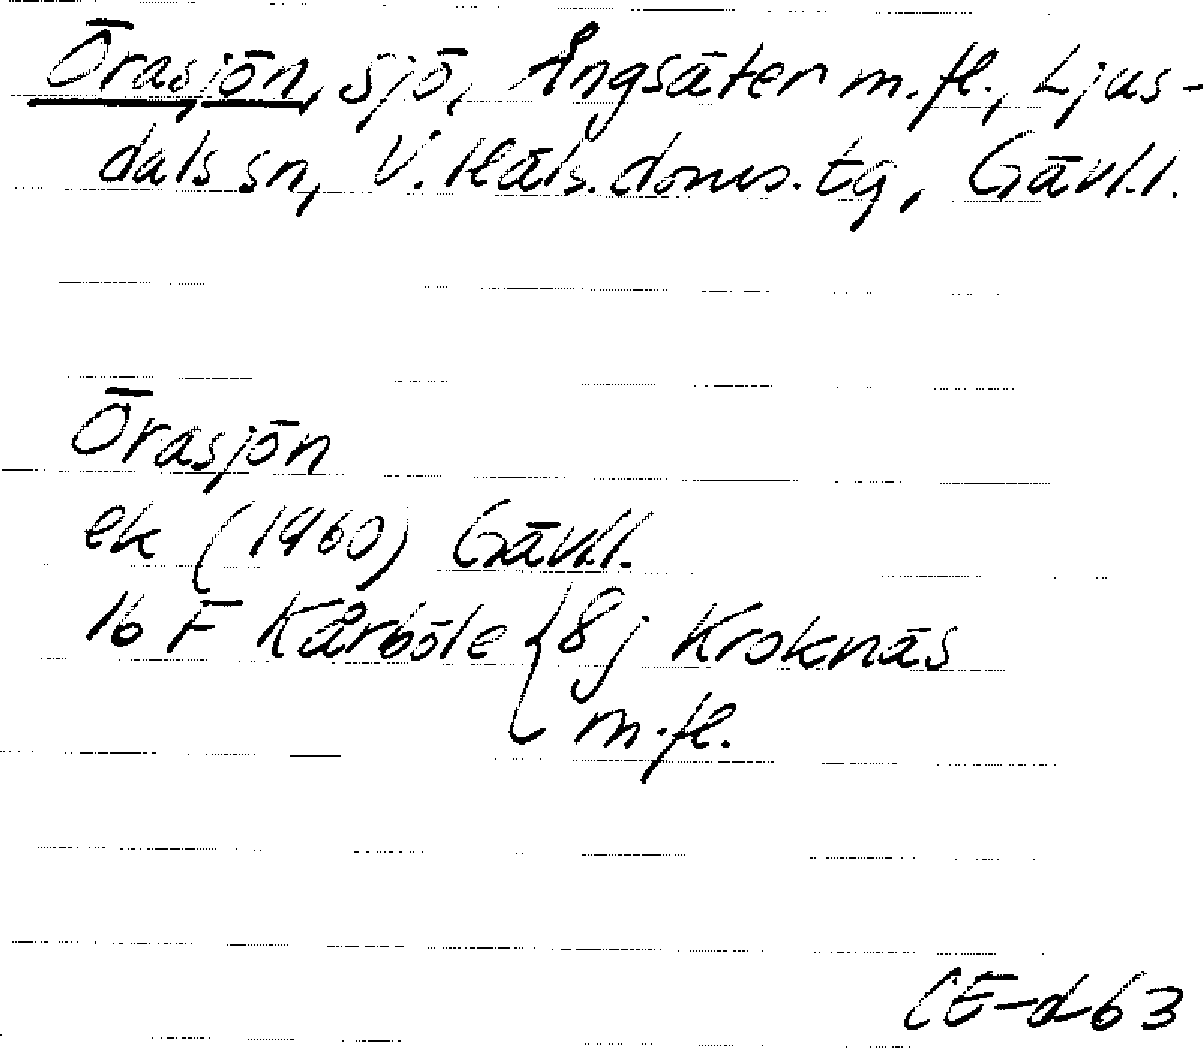 Örasjön, sjö, Ängsäter m.fl., Ljus-
dals sn, V. Häls. doms. tg, Gävl.l.
Örasjön
ek (1960) Gävl.l.
16 F Kårböle { 8j Kroknäs
m.fl.
CE-d-63